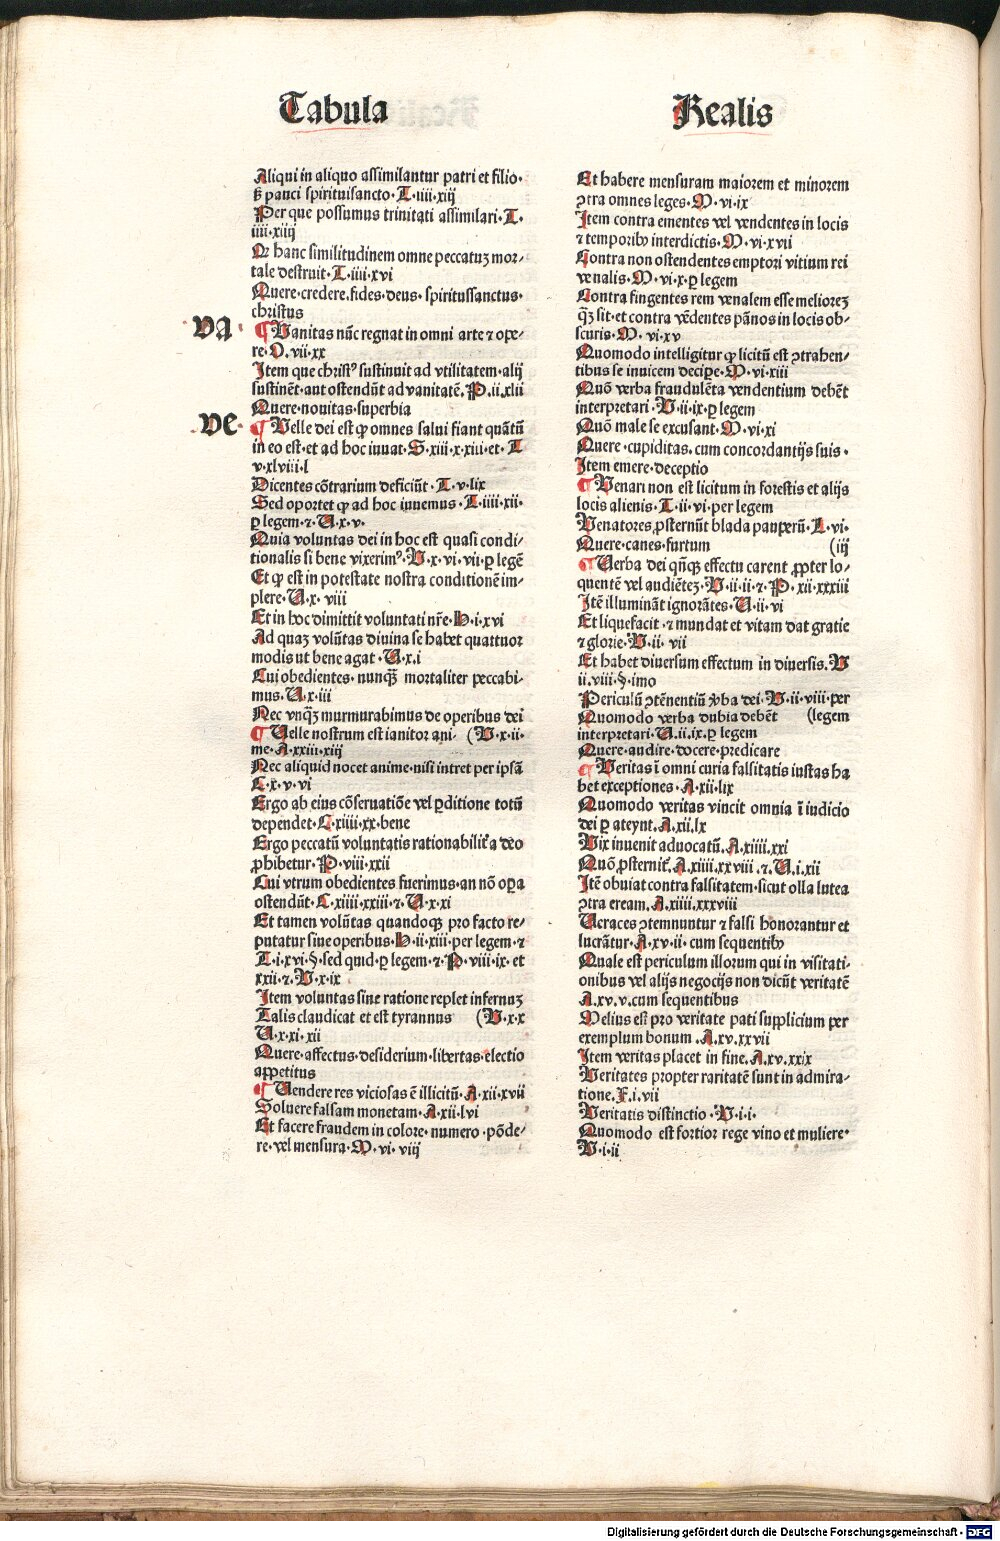 Tabula
Realis
Aliqui in aliquo assimilantur patri et filio·
ꝫ pauci spirituisancto·T·iiii·xiij
Per que possumus trinitati assimilari·T·
iiii·xiiij
Qꝛ hanc similitudinem omne peccatuꝫ mor⸗
tale destruit·T·iiii·xvi
Quere·credere·fides·deus·spiritussanctus·
christus
va·
¶ Vanitas nūc regnat in omni arte ⁊ ope⸗
re·O·vii·xx
Item que christꝰ sustinuit ad vtilitatem·alij
sustinēt·aut ostendūt ad vanitatē·P·ii·xlii
Quere·nouitas·superbia
ve·
¶ Velle dei est ꝙ omnes salui fiant quātū
in eo est·et ad hoc iuuat·S·xiii·x·xiii·et·T
v·xlviii·l
Dicentes cōtrarium deficiūt·T·v·lix
Sed oportet ꝙ ad hoc iuuemus·T·iiii·xii·
ꝑ legem·⁊·U·x·v·
Quia voluntas dei in hoc est quasi condi⸗
tionalis si bene vixerimꝰ·V·x·vi·vii·ꝑ legē
Et ꝙ est in potestate nostra conditionē im⸗
plere·U·x·viii
Et in hoc dimittit voluntati nr̄e·H·i·xvi
Ad quaꝫ volūtas diuina se habet quattuor
modis ut bene agat·U·x·i
Cui obedientes·nunqꝫ̄ mortaliter peccabi⸗
mus·U·x·iii
Nec vnqꝫ̄ murmurabimus de operibus dei
¶ Uelle nostrum est ianitor ani⸗ (V·x·ii·
me·A·xxiii·xiij
Nec aliquid nocet anime·nisi intret per ipsā
C·x·v·vi
Ergo ab eius cōseruatiōe vel ꝑditione totū
dependet·C·xiiii·xx·bene
Ergo peccatū voluntatis rationabilit̓ a deo
ꝓhibetur·P·viii·xxii
Cui vtrum obedientes fuerimus·an nō oꝑa
ostendūt·C·xiiii·xxiii·⁊·U·x·xi
Et tamen volūtas quandoqꝫ pro facto re⸗
putatur sine operibus·H·ii·xiii·per legem·⁊
T·i·xvi·§·sed quid·ꝑ legem·⁊·P·viii·ix·et
xxii·⁊·V·x·ix
Item voluntas sine ratione replet infernuꝫ
Talis claudicat et est tyrannus (V·x·x
U·x·xi·xii
Quere·affectus·desiderium·libertas·electio
appetitus
¶ Uendere res viciosas ē illicitū·A·xii·xvii
Soluere falsam monetam·A·xii·lvi
Et facere fraudem in colore·numero·pōde⸗
re·vel mensura·M·vi·viij
Et habere mensuram maiorem et minorem
ꝯtra omnes leges·M·vi·ix
Item contra ementes vel vendentes in locis
⁊ temporibꝰ interdictis·M·vi·xvii
Contra non ostendentes emptori vitium rei
venalis·M·vi·x·ꝑ legem
Contra fingentes rem venalem esse melioreꝫ
qꝫ̄ sit·et contra vēdentes pānos in locis ob⸗
scuris·M·vi·xv
Quomodo intelligitur ꝙ licitū est ꝯtrahen⸗
tibus se inuicem decipe·M·vi·xiii
Quō verba fraudulēta vendentium debēt
interpretari·V·ii·ix·ꝑ legem
Quō male se excusant·M·vi·xi
Quere·cupiditas·cum concordantijs suis·
Item emere·deceptio
¶ Venari non est licitum in forestis et alijs
locis alienis·T·ii·vi·per legem
Venatores ꝓsternūt blada pauperū·L·vi·
Quere·canes·furtum (iij
¶ Uerba dei qn̄qꝫ effectu carent ꝓpter lo⸗
quentē vel audiētez·V·ii·ii·⁊·P·xii·xxxiii
Itē illumināt ignorātes·U·ii·vi
Et liquefacit·⁊ mundat et vitam dat gratie
⁊ glorie·V·ii·vii
Et habet diuersum effectum in diuersis·V
ii·viii·§·imo
Periculū ꝯtēnentiū v̓ba dei·V·ii·viii·per
Quomodo verba dubia debēt (legem
interpretari·U·ii·ix·ꝑ legem
Quere·audire·docere·predicare
¶ Veritas ī omni curia falsitatis iustas ha
bet exceptiones·A·xii·lix
Quomodo veritas vincit omnia ī iudicio
dei ꝑ ateynt·A·xii·lx
Vix inuenit aduocatū·A·xiiii·xxi
Quō ꝓsternit̓·A·xiiii·xxviii·⁊·U·i·xii
Itē obuiat contra falsitatem·sicut olla lutea
ꝯtra eream·A·xiiii·xxxviii
Ueraces ꝯtemnuntur ⁊ falsi honorantur et
lucrātur·A·xv·ii·cum sequentibꝰ
Quale est periculum illorum qui in visitati·
onibus vel alijs negocijs non dicūt veritatē
A·xv·v·cum sequentibus
Melius est pro veritate pati supplicium per
exemplum bonum·A·xv·xxvii
Item veritas placet in fine·A·xv·xxix
Veritates propter raritatē sunt in admira⸗
tione·F·i·vii
Veritatis distinctio·V·i·i·
Quomodo est fortior rege vino et muliere·
V·i·ii
Digitalisierung gefördert durch die Deutsche Forschungsgemeinschaft - DFG